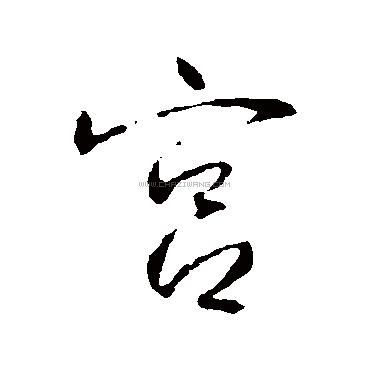 宫
WWW.CHAZIWANG.COM